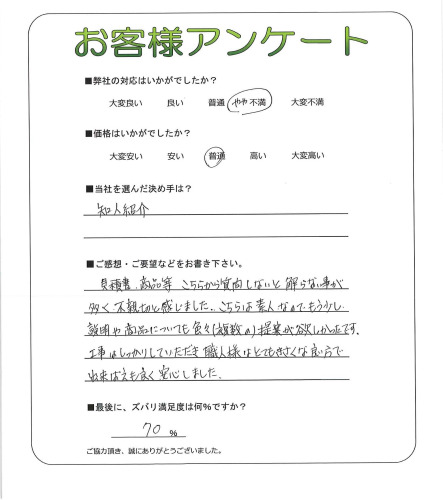 お客様アンケート
■弊社の対応はいかがでしたか？
大変良い 良い 普通 やや不満 大変不満
■価格はいかがでしたか？
大変安い 安い 普通 高い 大変高い
■当社を選んだ決め手は？
知人紹介
■ご感想・ご要望などをお書き下さい。
見積書、商品等 こちらから質問しないと解らない事が
多く不親切と感じました。こちらは素人なのでもう少し
説明や商品についても色々(複数の)提案が欲しかったです。
工事はしっかりしていただき職人様はとてもきさくな良い方で
出来ばえも良く安心しました。
■最後に、ズバリ満足度は何%ですか？
70 %
ご協力頂き、誠にありがとうございました。